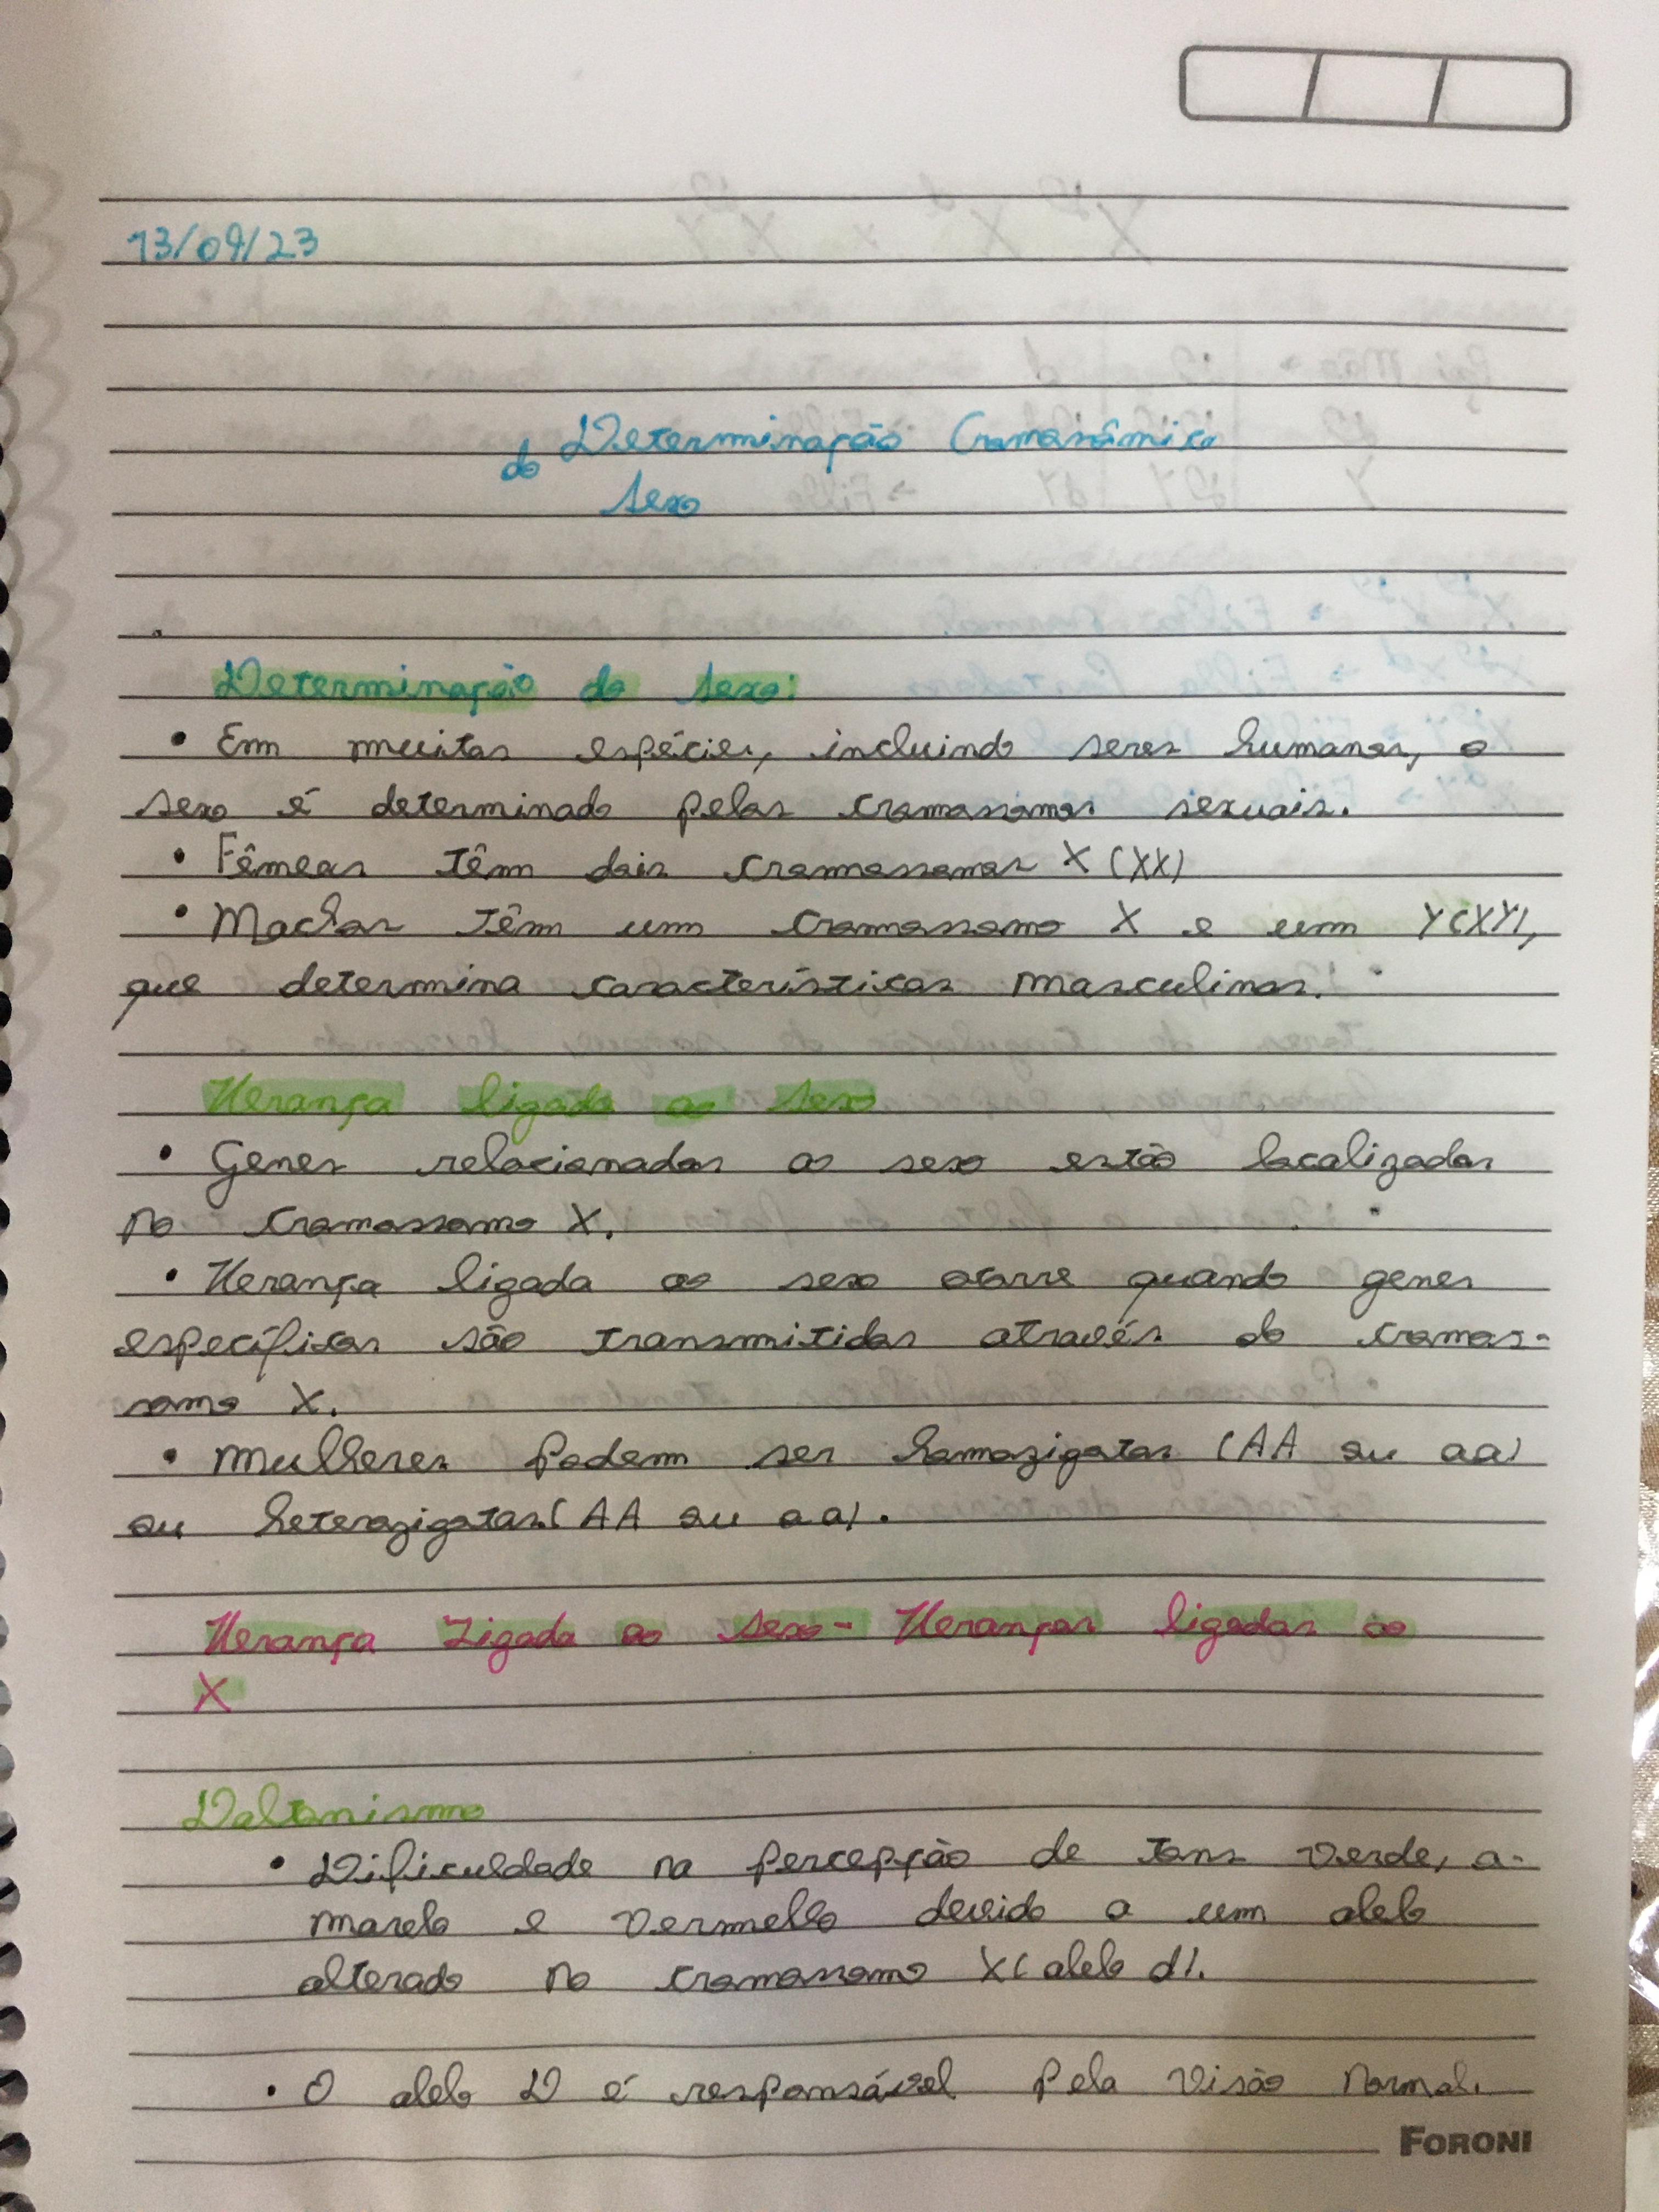 13/09/23
Determinação Cromossômica
do
Sexo
Determinação do Sexo:
• Em muitas espécies, incluindo seres humanos, o
sexo é determinado pelos cromossomos sexuais.
• Fêmeas têm dois cromossomos X (XX)
• Machos têm um cromossomo X e um Y(XY),
que determina características masculinas.
Herança ligada ao sexo
• Genes relacionados ao sexo estão localizados
no cromossomo X.
• Herança ligada ao sexo ocorre quando genes
específicos são transmitidos através do cromos-
somo X.
• Mulheres podem ser homozigotas (AA ou aa)
ou heterozigotas (AA ou aa).
Herança Ligada ao Sexo - Heranças ligadas ao
X
Daltonismo
• Dificuldade na percepção de tons verde, a-
marelo e vermelho devido a um alelo
alterado no cromossomo X (alelo d).
• O alelo D é responsável pela visão normal.
FORONI